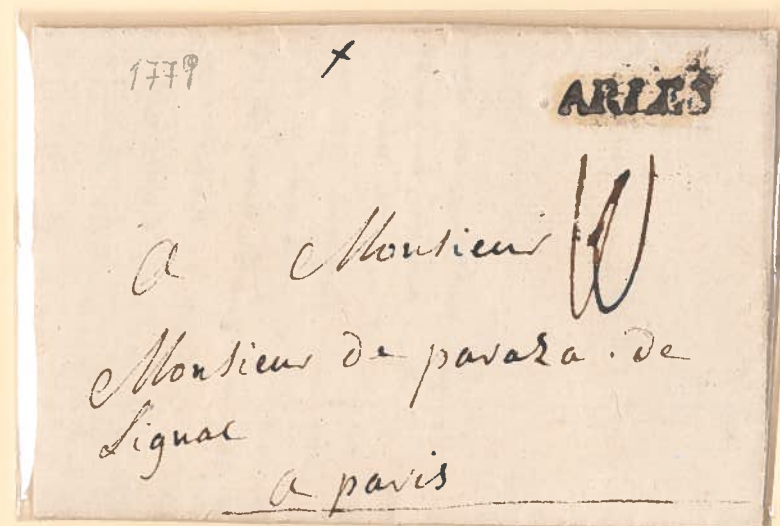 1779
ARLES
a Monsieur 10
Monsieur de paraza . de
Lignac
a paris